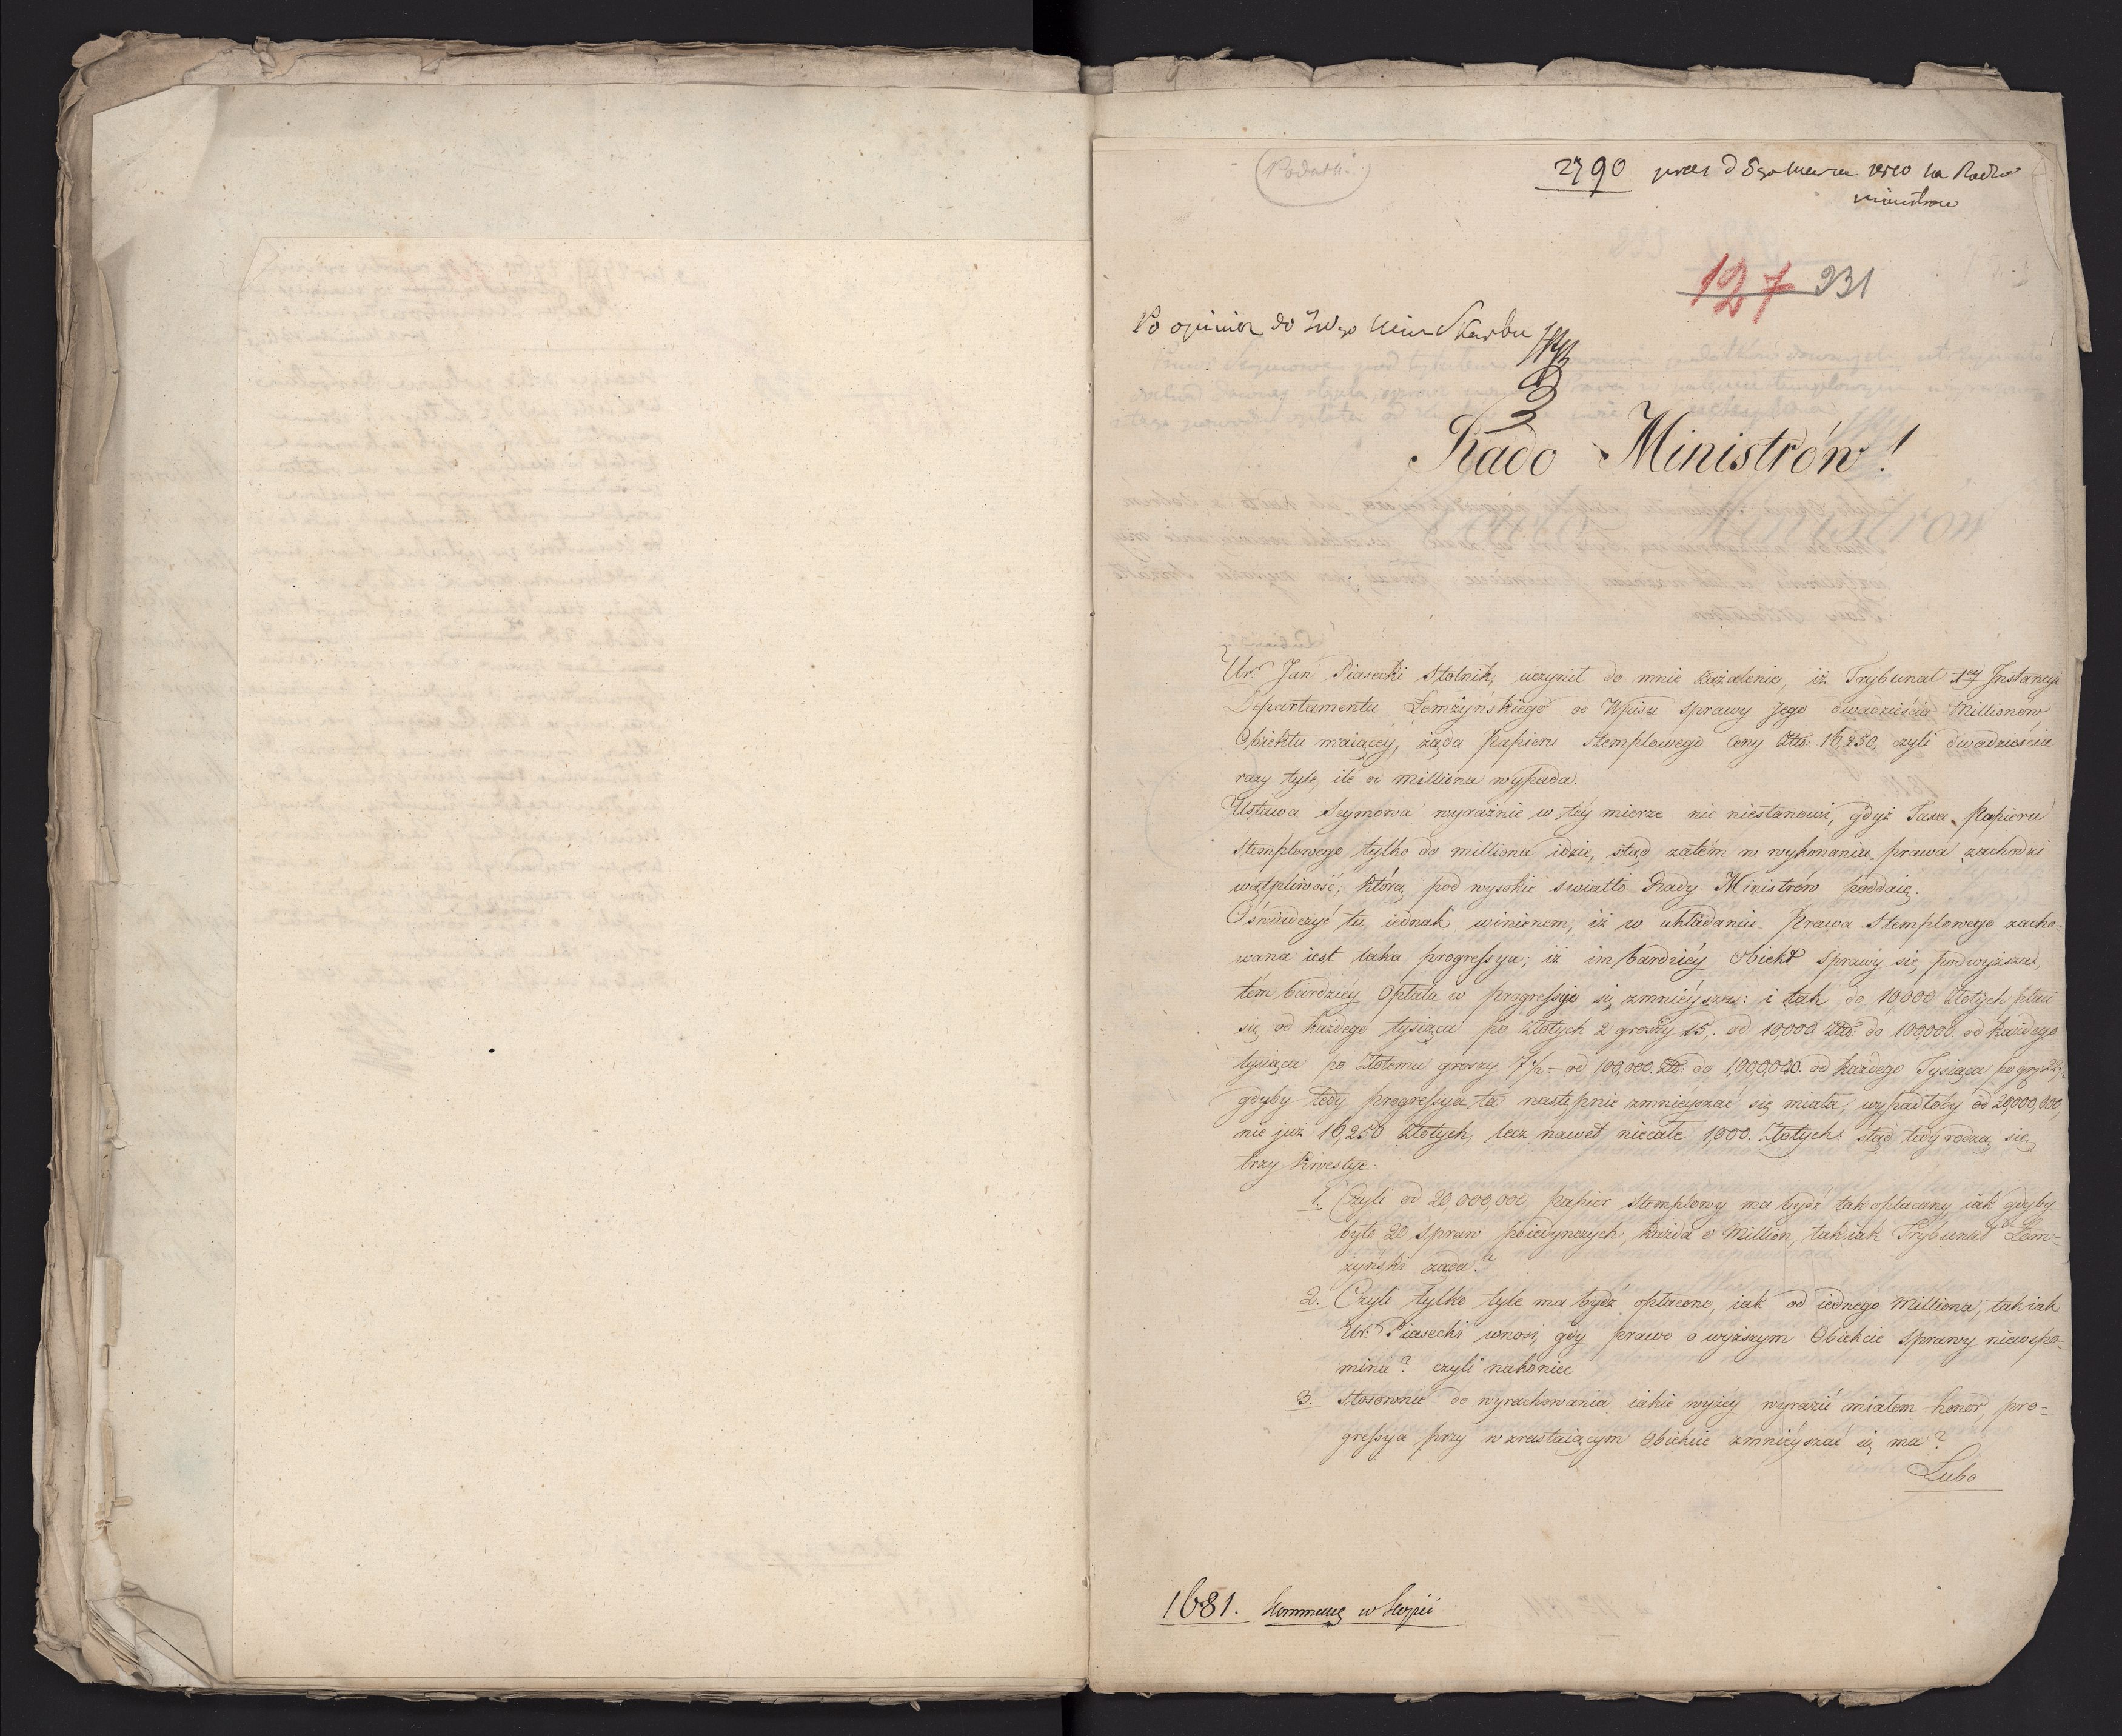 (Podatki.)
2790 prez d 5go 1810 na Radzie
ministrow
127 231
Po opinią do JWgo Min Skarbu
Rado Ministrów!
Ur. Jan Piasecki Stolnik, uczynił do mnie zażalenie, iż Trybunał 1ey Instancyi
Departamentu Łomżyńskiego od Wpisu sprawy Jego dwadzieścia Millionów
Obiektu maiącéy, żąda Papieru Stemplowego Ceny Złłb: 16,250, czyli dwadzieścia
razy tyle, ile od milliona wypada.
Ustawa Seymowa wyraźnie w téy mierze nic niestanowi, gdyż Taxa Papieru
Stemplowego tylko do milliona idzie, stąd zatém w wykonaniu prawa zachodzi
wątpliwość, którą pod wysokie swiatło Rady Ministrów poddaię.
Oświadczyć tu iednak winienem, iż w układaniu Prawa Stemplowego zacho=
wana iest taka progressya; iż im bardziéy Obiekt sprawy się podwyższa,
tém bardziéy Opłata w progressyi się zmnieysza: i tak do 10,000 Złotych płaci
się od każdego tysiąca po Złotych 2 groszy 15. od 10,000 Złłb: do 100000 od każdego
tysiąca po Złotemu groszy 7½ – od 100,000 Złłb: do 1,000,000 od każdego Tysiąca po gr: 22½
gdyby tedy progressya ta następnie zmnieyszać się miała; wypadłoby od 20,000,000
nie już 16,250 Złotych, lecz nawet niecałe 1,000. Złotych: stąd tedy rodzą się
trzy Kwestye:
1. Czyli od 20,000,000 papier Stemplowy ma bydź tak opłacany iak gdyby
było 20 spraw poiedynczych, każda o Million, tak iak Trybunał Łom=
żyński żąda?
2. Czyli tylko tyle ma bydź opłacono, iak od iednego Milliona, tak iak
Ur. Piasecki wnosi, gdy prawo o wyższym Obiekcie sprawy niewspo=
mina? czyli nakoniec
3. Stosownie do wyrachowania iakie wyżéy wyrazić miałem honor, pro=
gressya przy wzrastaiącym Obiekcie zmnieyszać się ma?
Łubo
1681. w